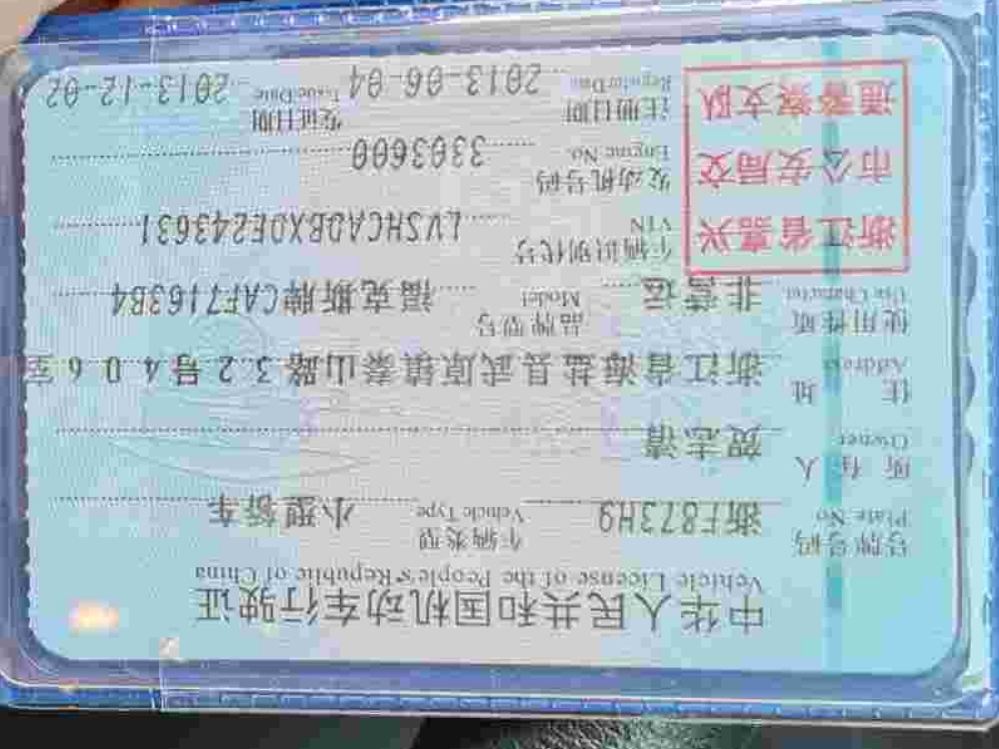 中华人民共和国机动车行驶证
Vehicle License of the People's Republic of China
号牌号码 浙F873H9 车辆类型 小型轿车
Plate No. Vehicle Type
所有人 贺志清
Owner
住址 浙江省海盐县武原镇秦山路32号406室
Address
使用性质 非营运 品牌型号 福克斯牌CAF7163B4
Use Character Model
浙江省嘉兴
市公安局交
通警察支队
车辆识别代号 LVSHCADBXDE243631
VIN
发动机号码 3303600
Engine No.
注册日期 2013-06-04 发证日期 2013-12-02
Register Date Issue Date